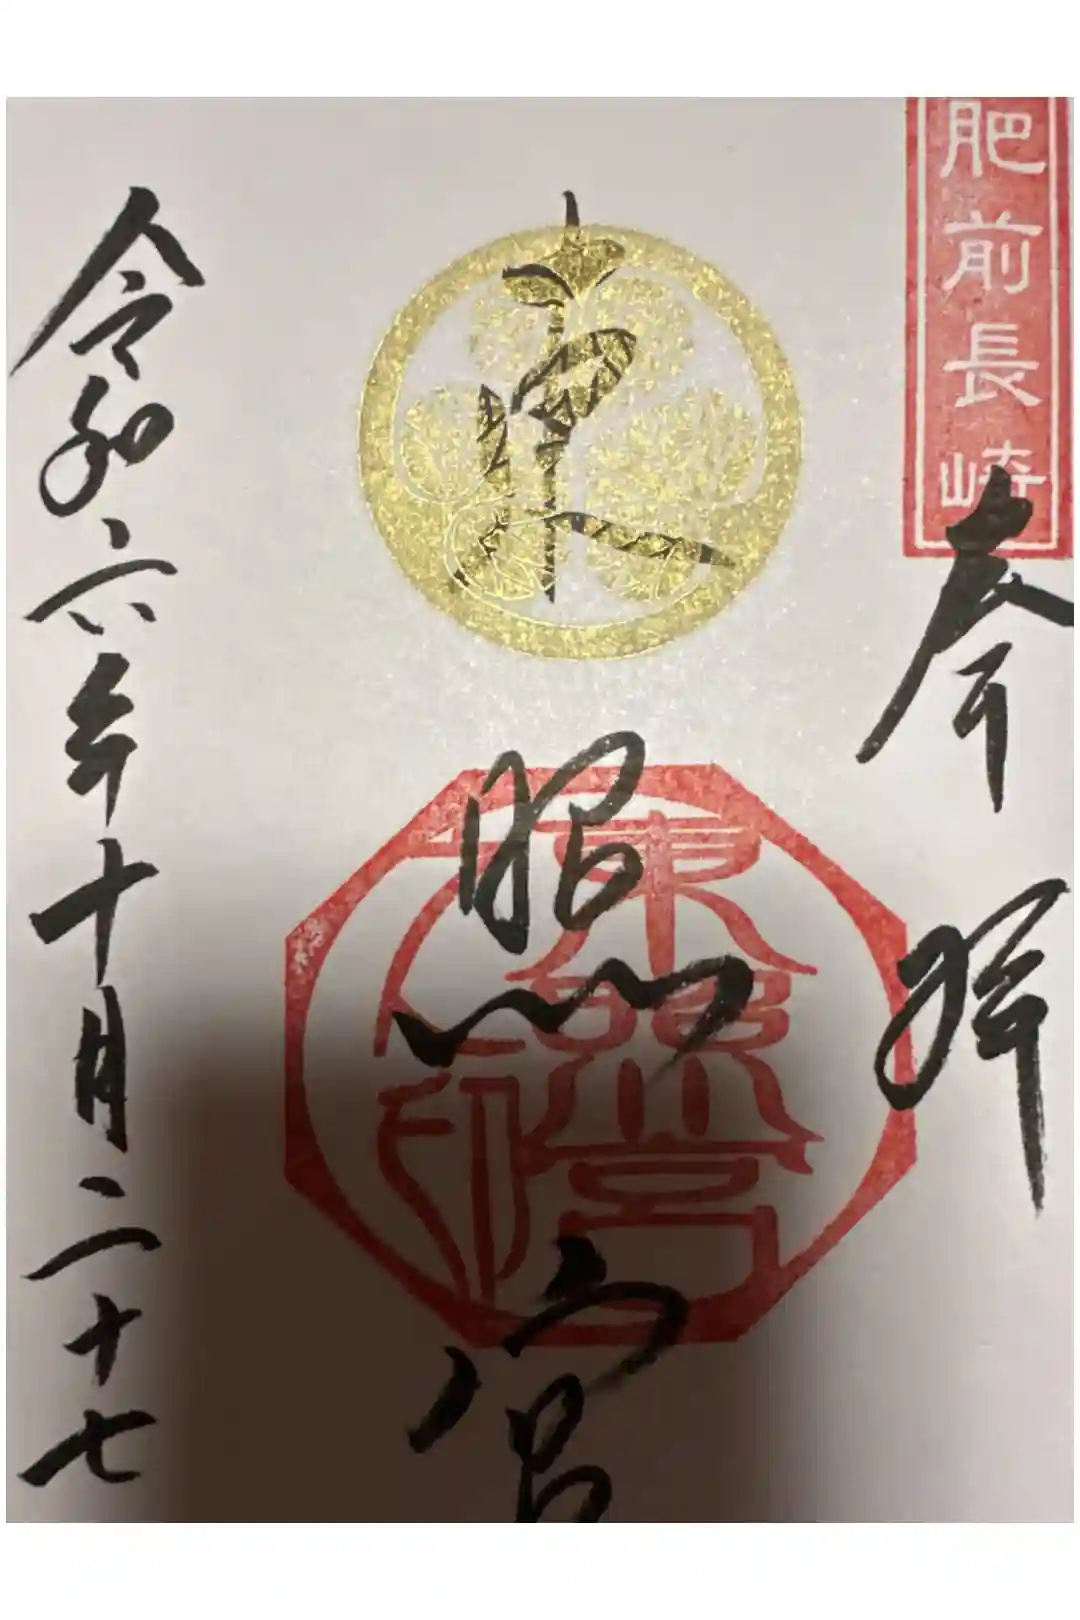 肥前長崎
奉拝
東照宮
東照宮印
令和六年十月二十七